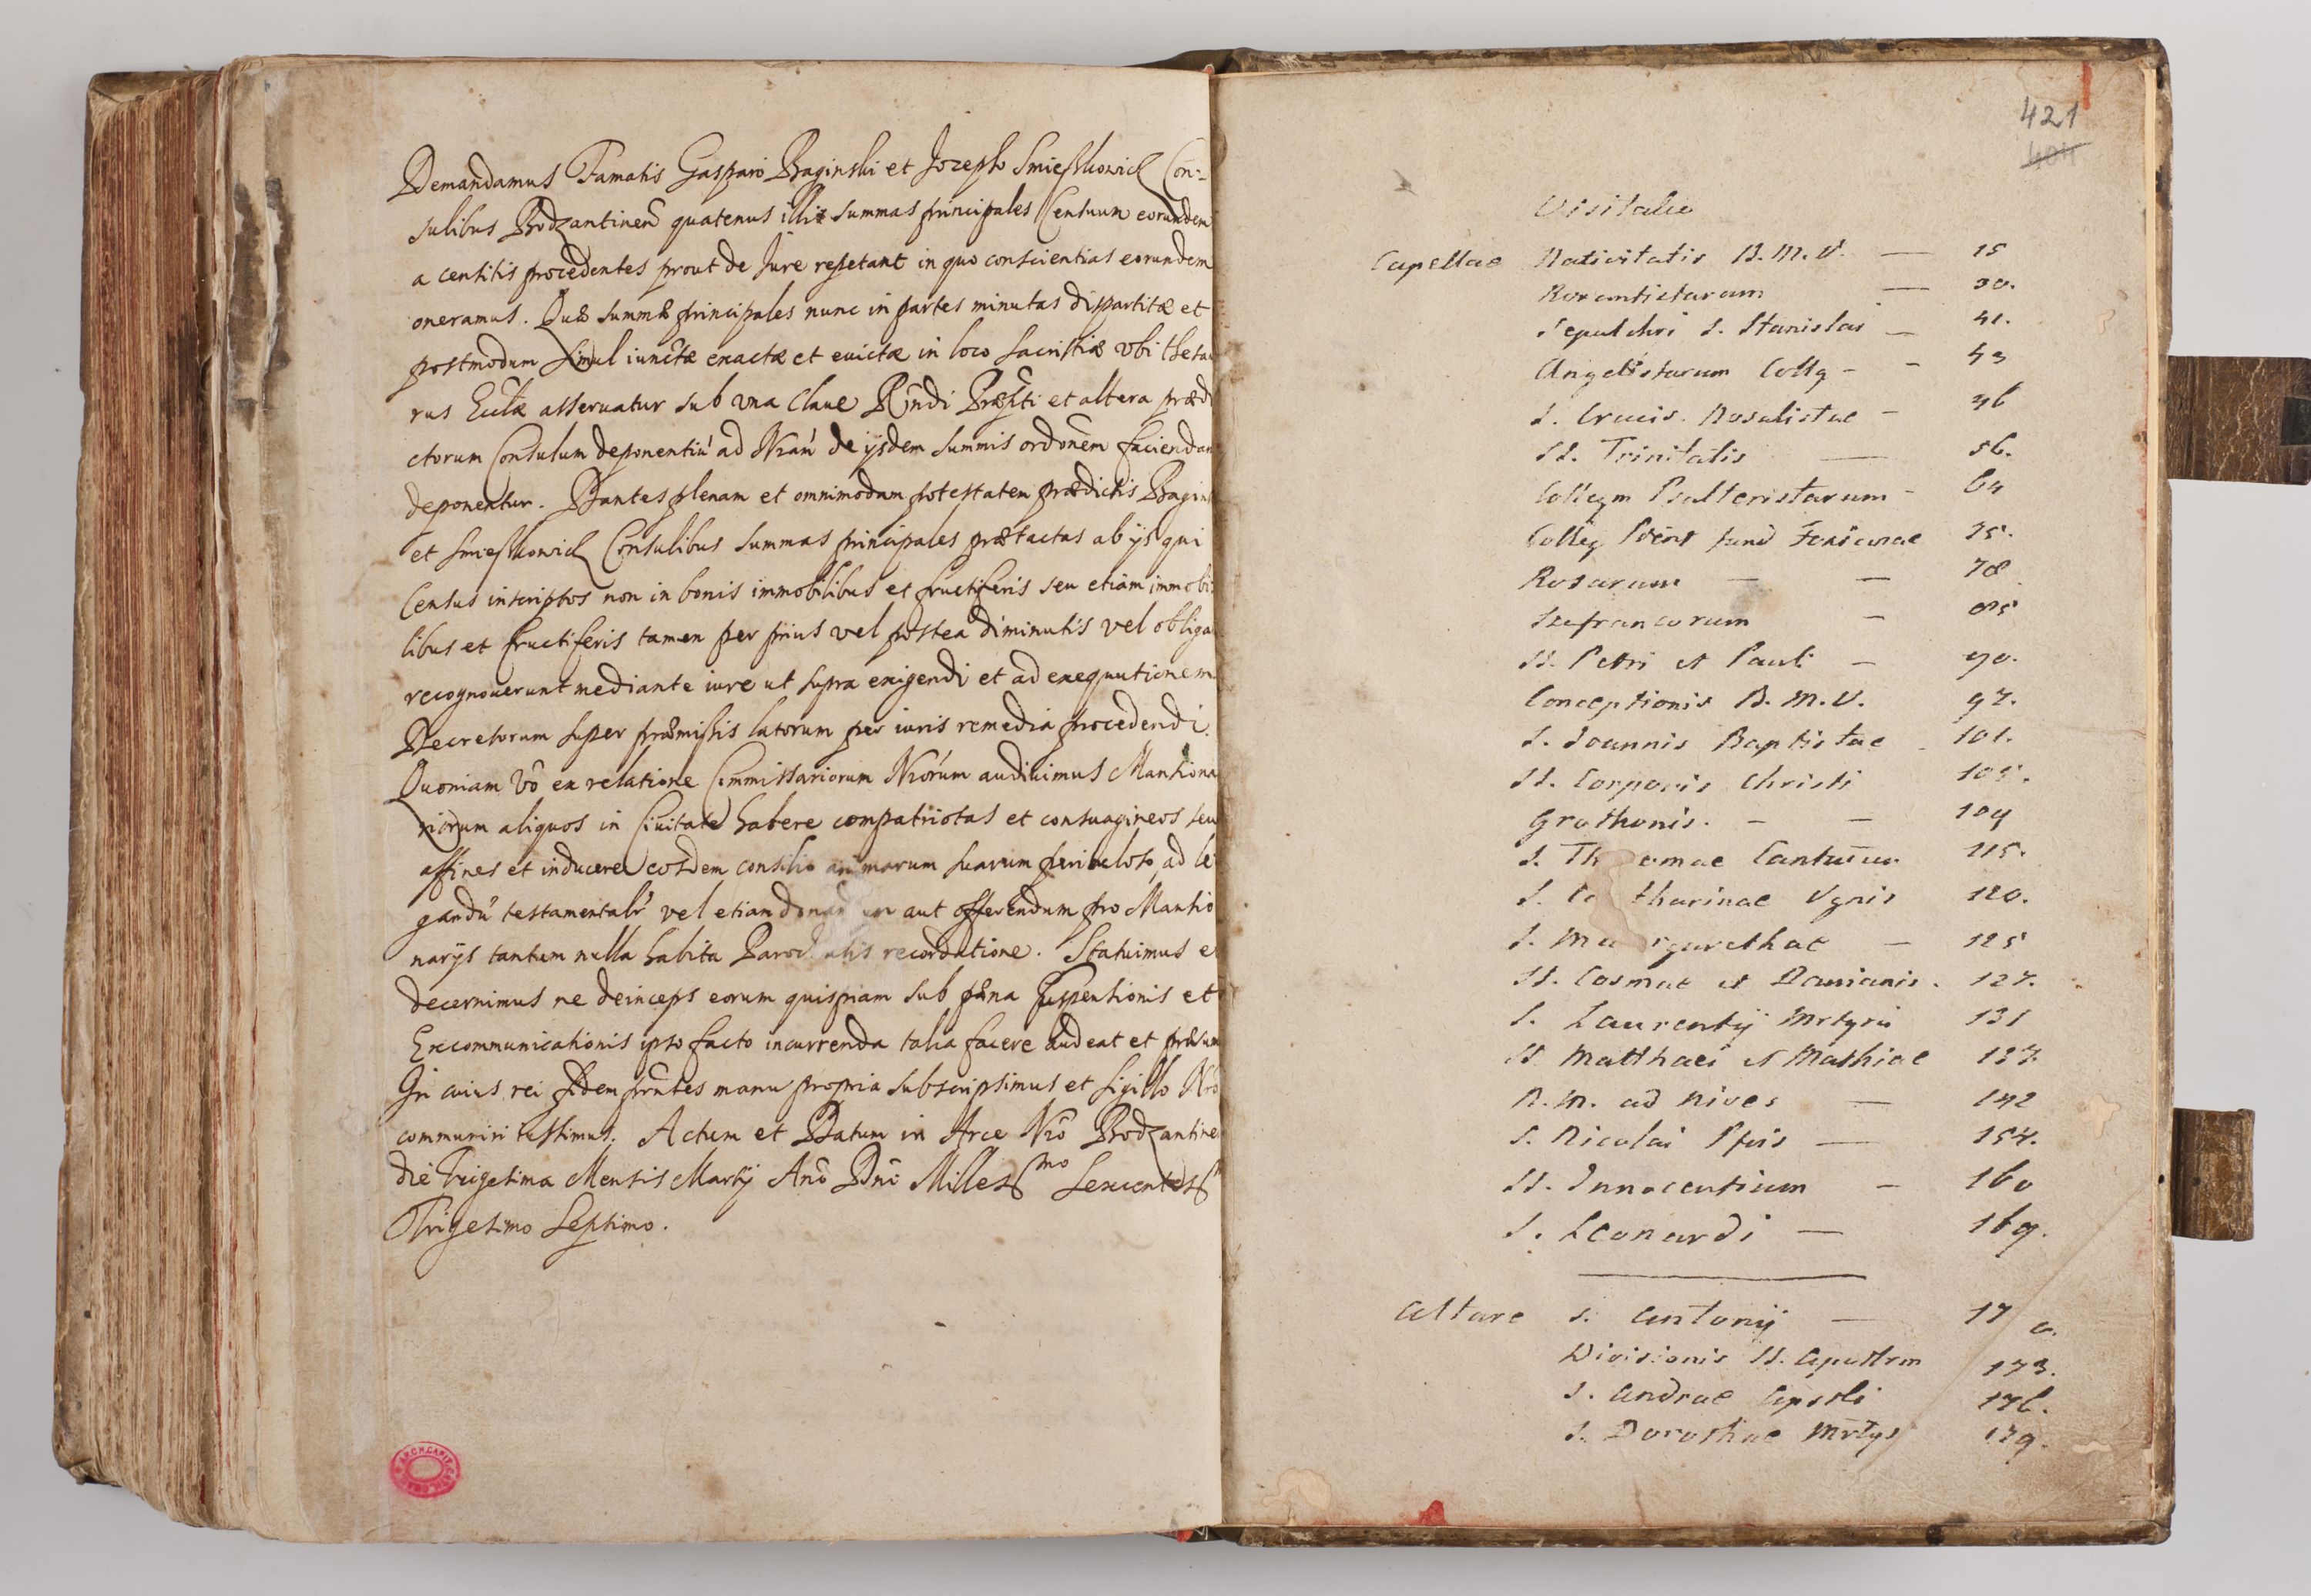 Demandamus Famatis Gasparo Baginski et Josepho Smieszkowicz Con-
sulibus Bodzantinen̄ quatenus illis summas principales Censuum eorundem
a censitis procedentes prout de Jure repetant in quo conscientias eorundem
oneramus. Quæ summæ principales nunc in partes minutas dispartitæ et
postmodum simul iunctæ exactæ et euictæ in loco sacristiæ vbi thesau
rus Eccłæ asseruatur sub vna Claue R̄ndi Præpti et altera prædi
ctorum Consulum deponentiū ad N̄ram de ijsdem summis ordōnem faciendam
deponentur. Dantes plenam et omnimodam potestatem prædictis Bagins
et Smieszkowicz Consulibus summas principales prætactas ab ijs qui
Census inscriptos non in bonis immobilibus et fructiferis seu etiam immobi
libus et fructiferis tamen per prius vel postea diminutis vel obliga
recognouerunt mediante iure ut supra exigendi et ad exequutionem
Decretorum super præmissis latorum per iuris remedia procedendi.
Quoniam vō ex relatione Commissariorum N̄rorum audiuimus Mansiona
riorum aliquos in Ciuitate habere compatriotas et consuagineos seu
affines et inducere eosdem consilio animarum suarum periculoso, ad le
gandū testamentalr̄ vel etiam aut offerendum pro Mansio
narijs tantum nulla habita Parochialis recordatione. Statuimus et
decernimus ne deinceps eorum quispiam sub pæna suspensionis et
Excommunicationis ipso facto incurrenda talia facere audeat et præsum
In cuius rei fidem pr̄ntes manu propria subscripsimus et sigillo Nr̄o
communiri iussimus. Actum et Datum in Arce Nr̄a Bodzantine
die Trigesima Mensis Martij Anō Dn̄i Milless̄mo Sexcentess̄
Trigesimo Septimo.
421
404
Visitatio
Capellae Nativitatis B. M. V. — 15
Rorantistarum — 30.
Sepulchri S. Stanislai — 41.
Angelistarum Collg - - 43
S. Crucis. Rosalistae - 46
SS. Trinitatis — 56.
Collegm Psalteristarum - 64
Colleg fund 75.
Rosarum — — 78
Szafrancorum — 85
SS. Petri et Pauli — 90.
Conceptionis B. M. V. 97.
S. Joannis Baptistae - 101.
SS. Corporis Christi 105.
Grothonis. — — 109
S. Thomae Cantuar 115.
S. Catharinae Vgnis 120.
S. Margarethae — 125
SS. Cosmae et Damianis. 127.
S. Laurentij Mrtyris 131
SS Matthaei et Mathiae 137.
B. M. ad Nives — 142
S. Nicolai — 154.
SS. Innocentium — 160
S. Leonardi — 169.
Altare S. Antonij — 17 0.
Divisionis SS. Apostrm 173.
S. Andrae Apostli 176.
S. Dorothae Mrtys 179.